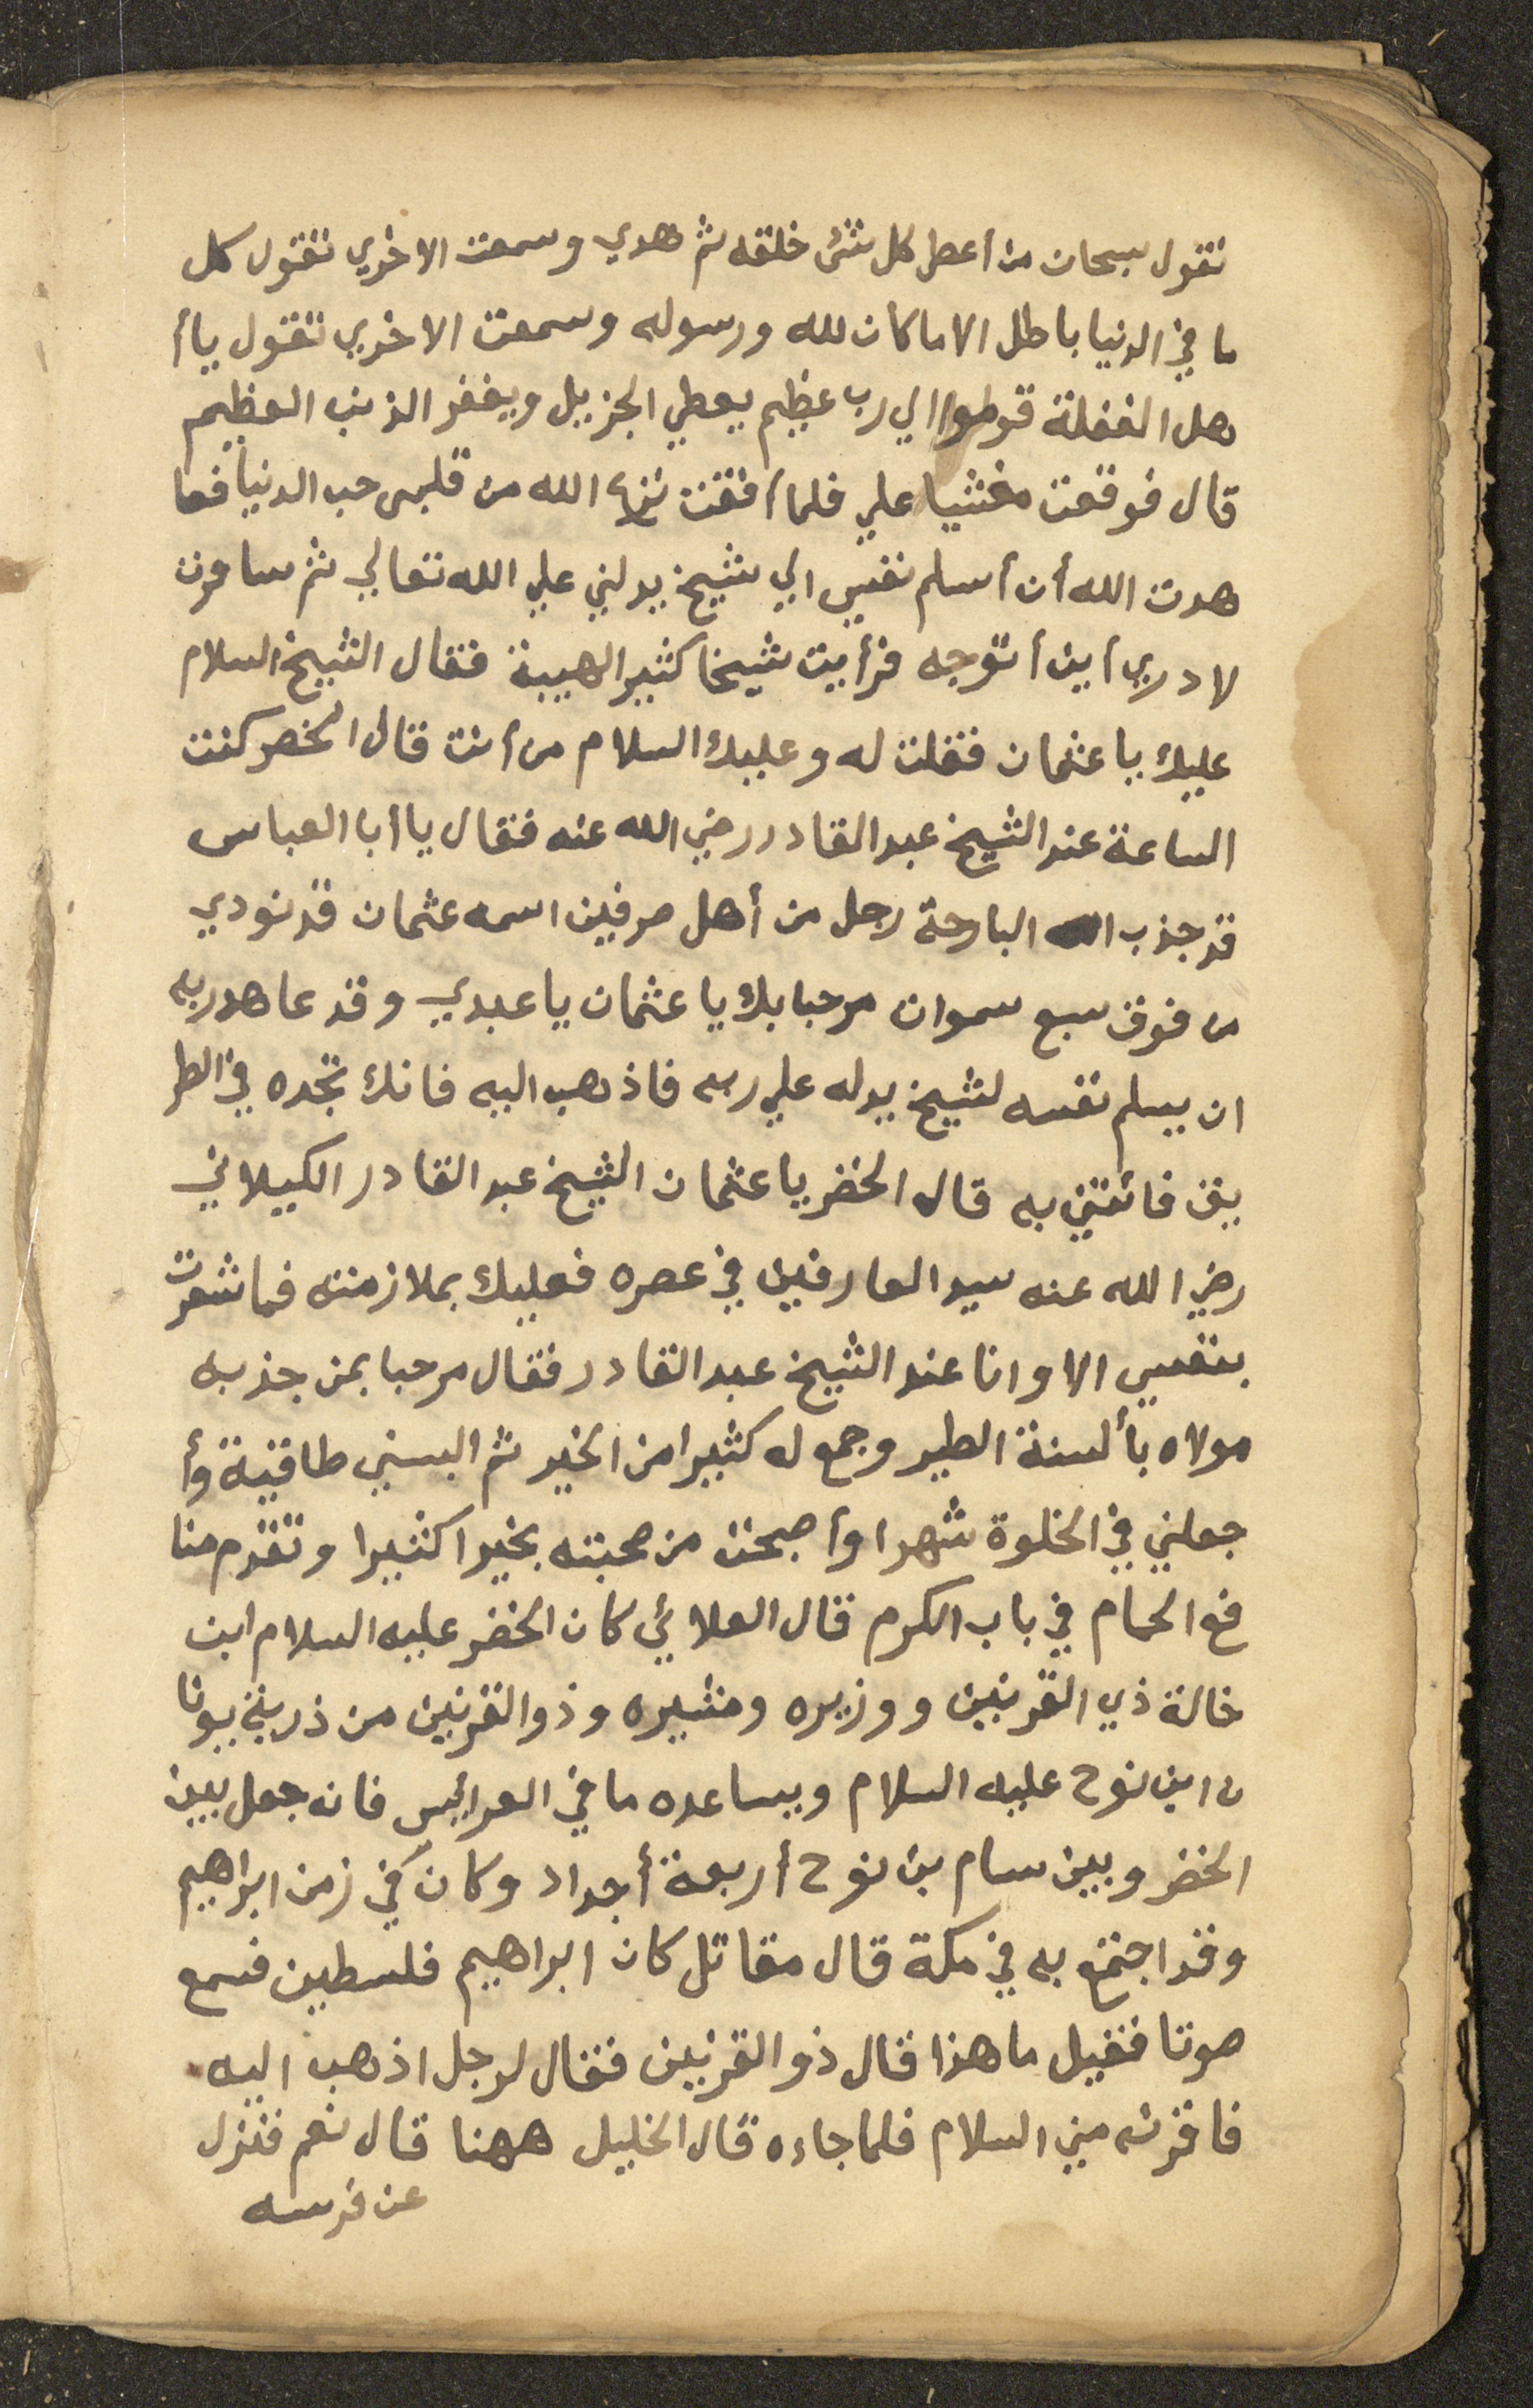 تقول سبحان من أعطى كل شئ خلقه ثم هدي وسمعت الاخري تقول كل
ما في الدنيا باطل الا ما كان لله ورسوله وسمعت الاخري تقول يا أ
هل الغفلة قوموا الي رب عظيم يعطي الجزيل ويغفر الذنب العظيم
قال فوقعت مغشيا علي فلما أفقت نزع الله من قلبى حب الدنيا فعا
هدت الله أن أسلم نفسي الي شيخ يدلني علي الله تعالي ثم سافرت
لا دري أين أتوجه فرأيت شيخا كثير الهيبة فقال الشيخ السلام
عليك يا عثمان فقلت له وعليك السلام من أنت قال الخضر كنت
الساعة عند الشيخ عبد القادر رضي الله عنه فقال يا أبا العباس
قد جذب الله البارحة رجل من أهل صرفين اسمه عثمان قد نودي
من فوق سبع سموات مرحبا بك يا عثمان يا عبدي وقد عاهد ربه
ان يسلم نفسه لشيخ يدله علي ربه فاذهب اليه فانك تجده في الطر
يق فائتني به قال الخضر يا عثمان الشيخ عبد القادر الكيلاني
رضي الله عنه سيد العارفين في عصره فعليك بملازمته فما شعرت
بنفسي الا وانا عند الشيخ عبد القادر فقال مرحبا بمن جذبه
مولاه بألسنة الطير وجمع له كثيرا من الخير ثم البسني طاقية وأ
جعلني في الخلوة شهرا وأصبحت من صحبته بخيرا كثيرا وتقدم منا
فع الحمام في باب الكرم قال العلائي كان الخضر عليه السلام ابن
خالة ذي القرنين ووزيره ومشيره وذو القرنين من ذرية يونا
ن ابن نوح عليه السلام ويساعده ما في العرائس فانه جعل بين
الخضر وبين سام بن نوح أربعة أجداد وكان في زمن ابراهيم
وقد اجتمع به في مكة قال مقاتل كان ابراهيم فلسطين فسمع
صوتا فقيل ما هذا قال ذو القرنين فقال لرجل اذهب اليه
فاقرئه مني السلام فلما جاءه قال الخليل ههنا قال نعم فنزل
عن فرسه